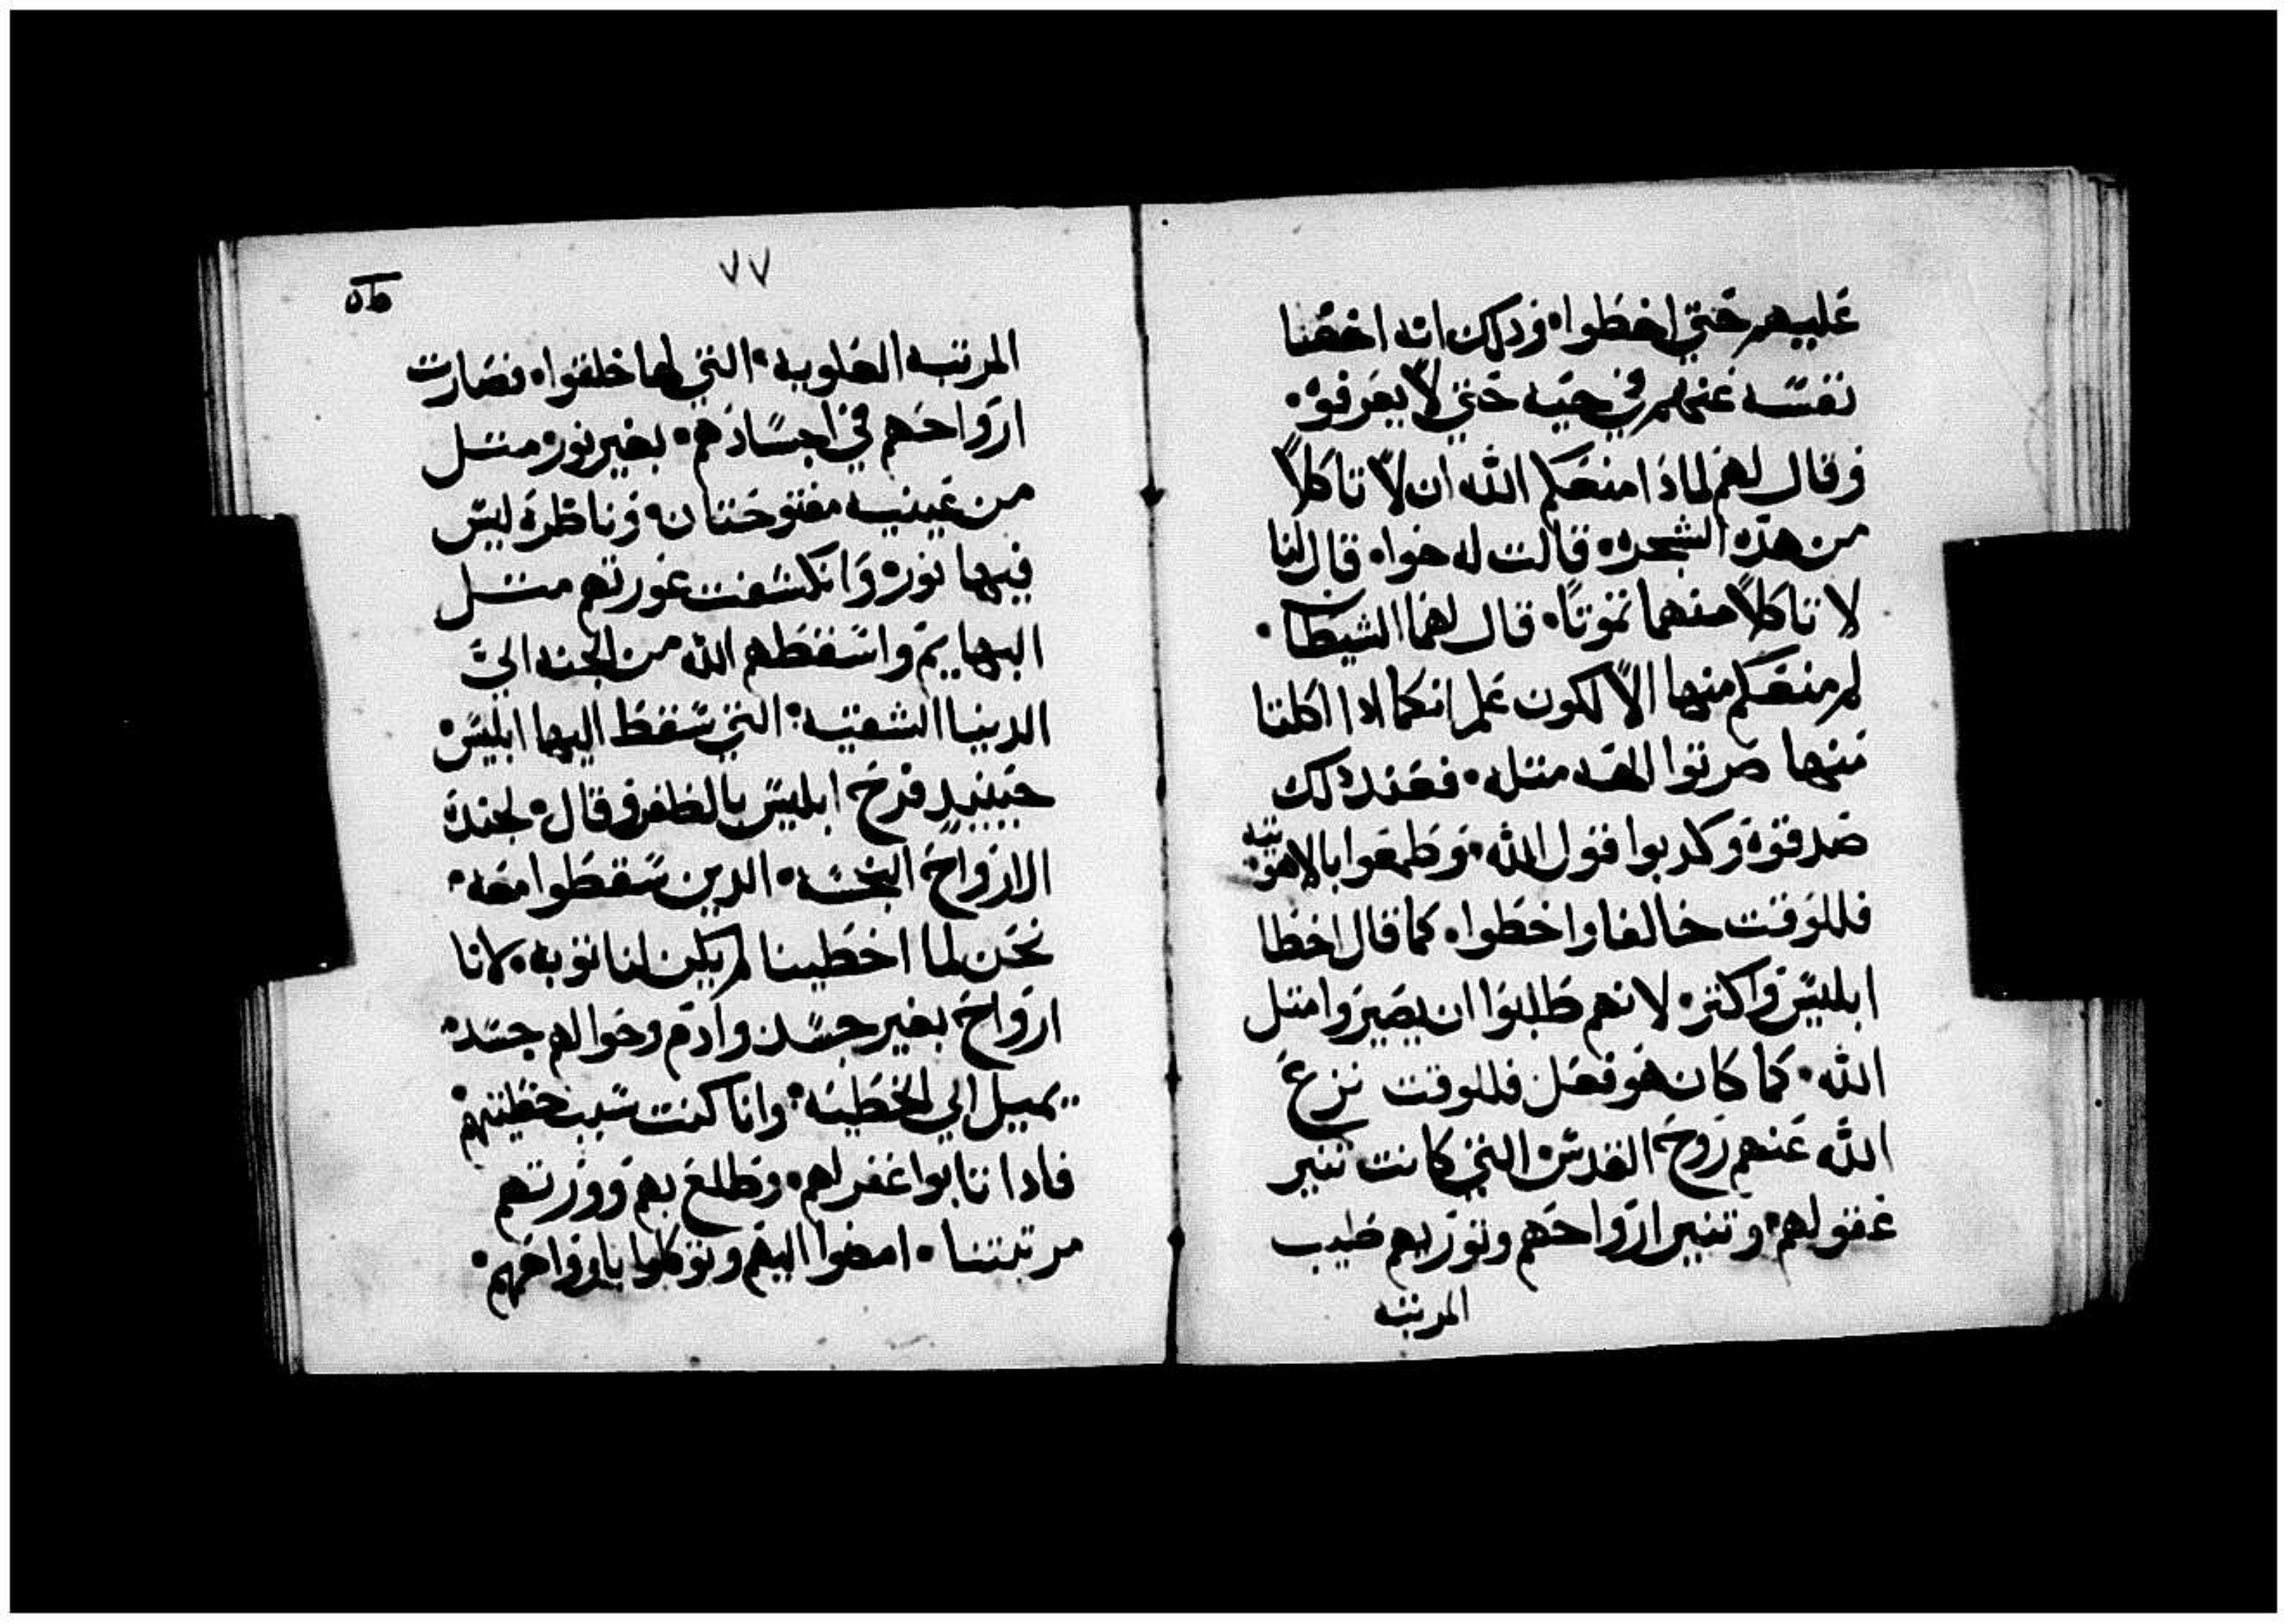 عليهم حتي اخطوا۰ وذلك انه اخفا
نفسه عنهم في حيه حتي لا يعرفوه۰
وقال لهم لماذا منعكم الله ان لا تاكلا
من هذه الشجره۰ قالت له حوا۰ قال لنا
لا تاكلا منهما تموتا۰ قال لهما الشيطان۰
لم منعكم منها الا لكون علم انكما ادا اكلتا
منها صرتوا الهه متله۰ فعند دلك
صدقوه وكدبوا قول الله۰ وطمعوا بالاهوتيه
فللوقت خالفا واخطوا۰ كما قال اخطا
ابليس واكتر۰ لانهم طلبوا ان يصيروا متل
الله۰ كما كان هو فعل فللوقت نزع
الله عنهم روح القدس۰ التي كانت تنير
عقولهم۰ وتنير ارواحهم وتورهم طيب
المرتبه
٧٧
المرتبه العلويه۰ التي لها خلقوا۰ فصارت
ارواحهم في اجسادهم۰ بغير نور۰ متل
من عينيه مفتوحتان۰ وناظره ليس
فيها نور۰ وانكشفت عورتهم متل
البهايم واسقطهم الله من الجنه الي
الدنيا الشقيه۰ التي سقط اليها ابليس۰
حينيد فرح ابليس بالظفر وقال۰ لجنده
الارواح النجسه۰ الدين سقطوا معه۰
نحن لما اخطينا لم يكن لنا توبه۰ لانا
ارواح بغير جسد۰ وادم وحوا لهم جسد۰
يميل الي الخطيه۰ وانا كنت سبب خطيتهم۰
فادا تابوا غفر لهم۰ وطلع بهم وورتهم
مرتبتنا۰ امضوا اليهم وتوكلوا بارواحهم۰